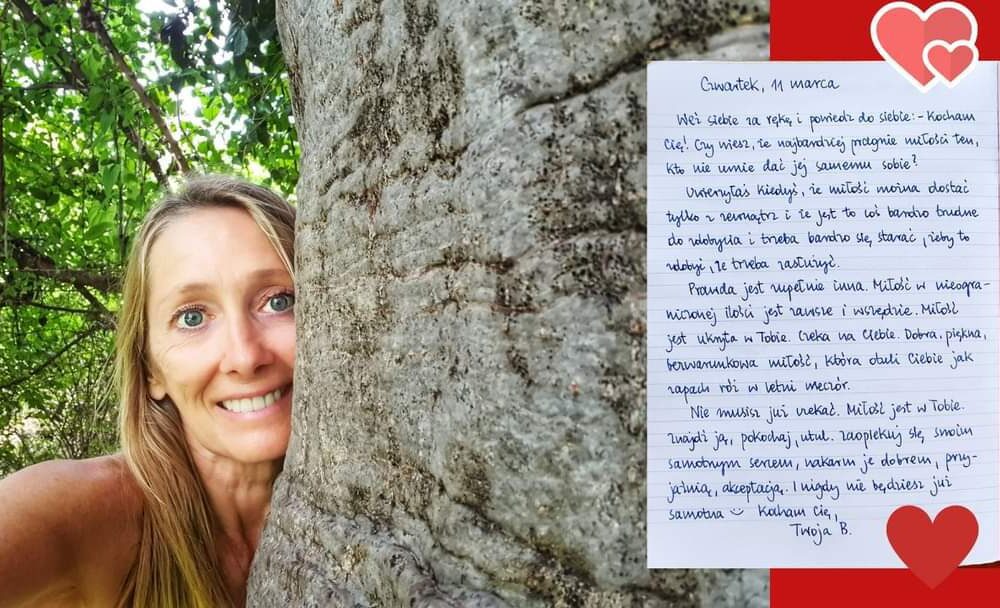 Czwartek, 11 marca
Weź siebie za rękę i powiedz do siebie: - Kocham
Cię! Czy wiesz, że najbardziej pragnie miłości ten,
kto nie umie dać jej samemu sobie?
Uwierzyłaś kiedyś, że miłość można dostać
tylko z zewnątrz i że jest to coś bardzo trudne
do zdobycia i trzeba bardzo się starać, żeby to
zdobyć, że trzeba zasłużyć.
Prawda jest zupełnie inna. Miłość w nieogra-
niczonej ilości jest zawsze i wszędzie. Miłość
jest ukryta w Tobie. Czeka na Ciebie. Dobra, piękna,
bezwarunkowa miłość, która otuli Ciebie jak
zapach róż w letni wieczór.
Nie musisz już czekać. Miłość jest w Tobie.
znajdź ją, pokochaj, utul. zaopiekuj się swoim
samotnym sercem, nakarm je dobrem, przy-
jaźnią, akceptacją. I nigdy nie będziesz już
samotna Kocham Cię,
Twoja B.